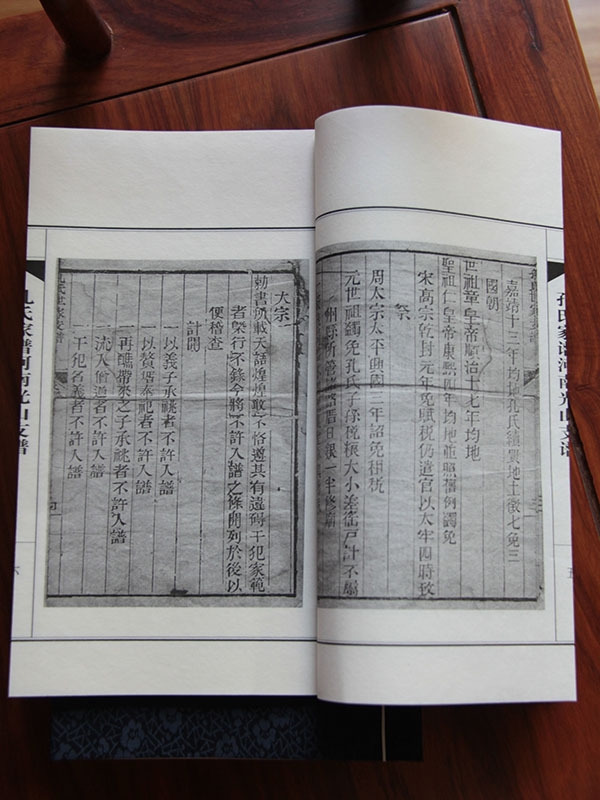 嘉靖十三年均地孔氏續置地土徵七免三
國朝
世祖章皇帝順治十七年均地
聖祖仁皇帝康熙四年均地並照舊例蠲免
宋高宗乾封元年免賦稅仍遣官以太牢四時致
祭
周太宗太平興國三年詔免租稅
元世祖蠲免孔氏子孫稅糧大小差徭戶計不屬
州縣所管
大宗
勅書所載天語煌煌敢不恪遵其有違碍干犯家範
者槩行不錄今將不許入譜之條開列於後以
便稽查
計開
一以義子承祧者不許入譜
一以贅壻奉祀者不許入譜
一再醮帶來之子承祧者不許入譜
一流入僧道者不許入譜
一干犯名義者不許入譜
孔氏家譜河南光山支譜
六